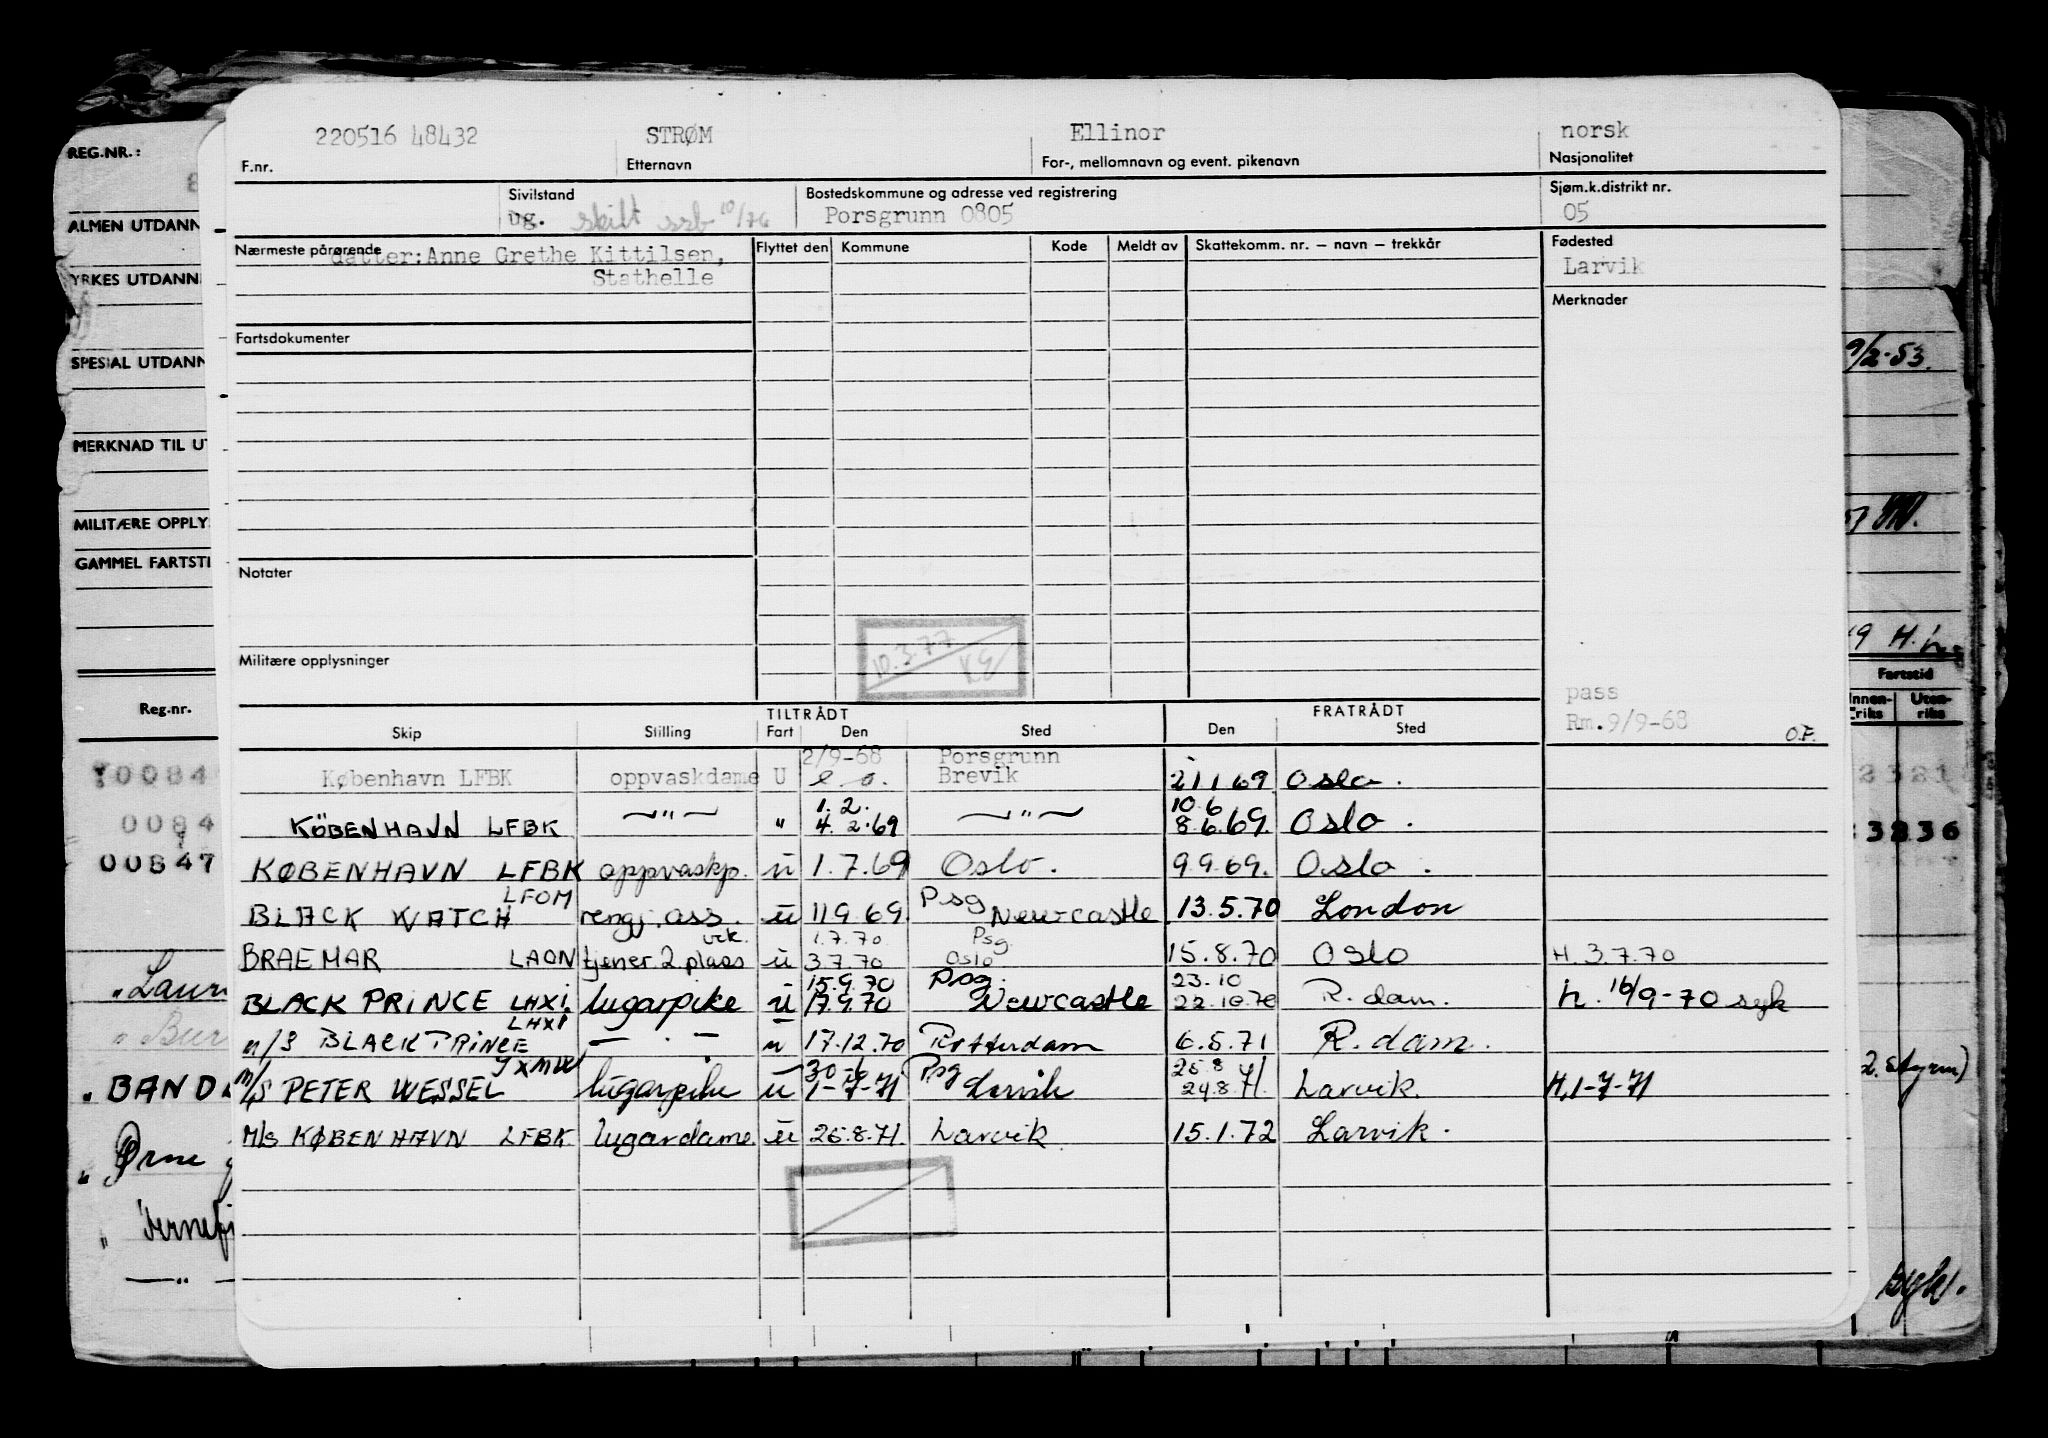 220516 48432 STRØM Ellinor norsk
F.nr. Etternavn For-, mellomnavn og event. pikenavn Nasjonalitet
Sivilstand Bostedskommune og adresse ved registrering Sjøm.k.distrikt nr.
ug. skilt ssb 10/76 Porsgrunn 0805 05
Nærmeste pårørende Flyttet den Kommune Kode Meldt av Skattekomm. nr. – navn – trekkår Fødested
datter:Anne Grethe Kittilsen, Larvik
Stathelle
Merknader
Fartsdokumenter
Notater
10.3.77
Militære opplysninger
pass
Rm.9/9-68 O.F.
TILTRÅDT FRATRÅDT
Skip Stilling Fart Den Sted Den Sted
2/9-68 Porsgrunn
København LFBK oppvaskdame U Brevik 21 1 69 Oslo.
1.2. 10.6
KÖBENHAVN LFBK —"— " 4.2.69 —"— 8.6.69. Oslo.
KØBENHAVN LFBK oppvaskp. u 1.7.69 Oslo. 9.9.69. Oslo.
LFOM Psg
BLACK WATCH rengj.ass. u 11.9.69. Newcastle 13.5.70 London
vik. 1.7.70 Psg.
BRAEMAR LAON tjener 2 plass u 3.7.70 Oslo 15.8.70 Oslo H. 3.7.70
15.9.70 Psg. 23.10
BLACK PRINCE LHXI. lugarpike u 17.9.70 Newcastle 22.10.70 R.dam. h. 16/9-70 syk
LHXI
m/S BLACK PRINCE — . — u 17.12.70 Rotterdam 6.5.71 R.dam.
30-6 Psg 25.8
M/S PETER WESSEL lugarpike u 1-7-71 Larvik 24.8.71. Larvik. H.1-7-71
M/S KØBENHAVN LFBK lugardame u 26.8.71. Larvik 15.1.72 Larvik.
REG.NR.:
ALMEN UTDANN
YRKES UTDANN
SPESIAL UTDANN
MERKNAD TIL UT
MILITÆRE OPPLY
GAMMEL FARTSTI
Reg.nr.
0084
0084
00847
"Laur
" Bur
" BAND
" Ørne
"
—"—
9/2-53.
Fartstid
Innen-riks Uten-riks
3236
2. styrm)